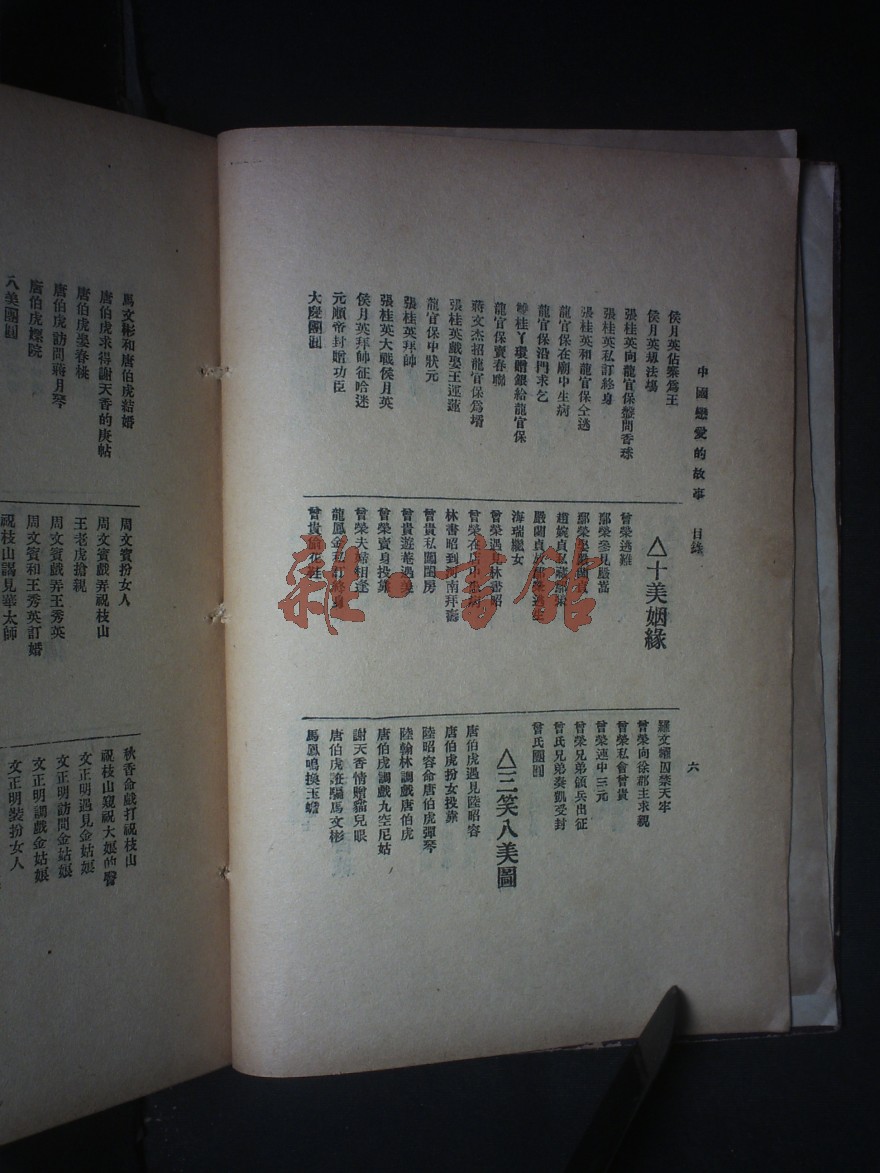 中國戀愛的故事　目錄
六
侯月英佔寨爲王
侯月英刼法塲
張桂英向龍官保盤問香球
張桂英私訂終身
張桂英和龍官保仝逃
龍官保在廟中生病
龍官保沿門求乞
桂丫環贈銀給龍官保
龍官保賣春聯
蔣文杰招龍官保爲壻
張桂英戲娶王運蓮
龍官保中狀元
張桂英拜帥
張桂英大戰侯月英
侯月英拜帥征哈迷
元順帝封贈功臣
大慶團圓
△十美姻緣
曾榮逃難
鄢榮參見嚴嵩
鄢榮娶嚴蘭貞
趙婉貞私藏鄢榮
嚴蘭貞
海瑞獻女
曾榮遇見林書昭
曾榮在店中
林書昭到河南拜壽
曾貴私闖閨房
曾貴遊庵遇美
曾榮賣身投靠
曾榮夫婦相逢
龍鳳金私訂終身
曾貴
羅文囚禁天牢
曾榮向徐郡主求親
曾榮私會曾貴
曾榮連中三元
曾榮兄弟領兵出征
曾氏兄弟奏凱受封
曾氏團圓
△三笑八美圖
唐伯虎遇見陸昭容
唐伯虎扮女投靠
陸昭容命唐伯虎彈琴
陸翰林調戲唐伯虎
唐伯虎調戲九空尼姑
謝天香情贈貓兒眼
唐伯虎誑騙馬文彬
馬鳳鳴換玉蟾
馬文彬和唐伯虎結婚
唐伯虎求得謝天香的庚帖
唐伯虎娶春桃
唐伯虎訪問蔣月琴
唐伯虎嫖院
八美團圓
周文賓扮女人
周文賓戲弄祝枝山
王老虎搶親
周文賓戲弄王秀英
周文賓和王秀英訂婚
祝枝山謁見華太師
秋香命戲打祝枝山
祝枝山窺視大娘的臀
文正明遇見金姑娘
文正明訪問金姑娘
文正明調戲金姑娘
文正明裝扮女人
雜·書館